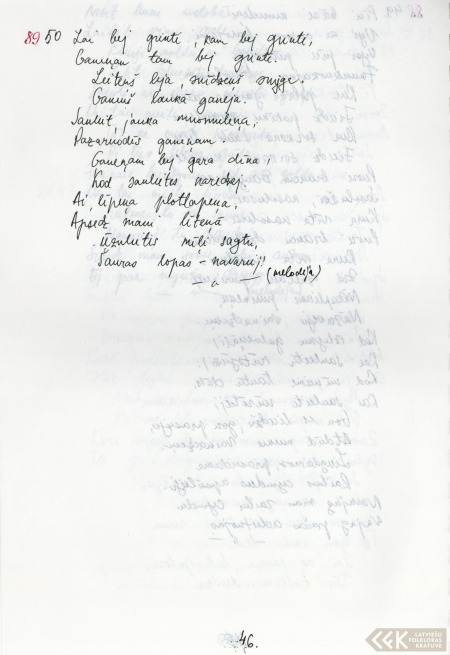 8950 Lai bej grinte, kam bej grinte,
Ganeņam tam bej grinte.
Leiteņš leja snidzeņš snyga.
Ganeņš laukā ganeja.
Sauleit, jauka
Pazarūdis ganeņam.
Ganeņam bej gara dīna,
Kod sauleites naredzej.
Ai, līpeņa plotlapeņa,
Apsedz mani līteņā
Ūzuleitis mīli sagtu,
Šauras lopas - navarej!
— " — (melodeja)
46.
LATVIEŠU
FOLKLORAS
KRĀTUVE